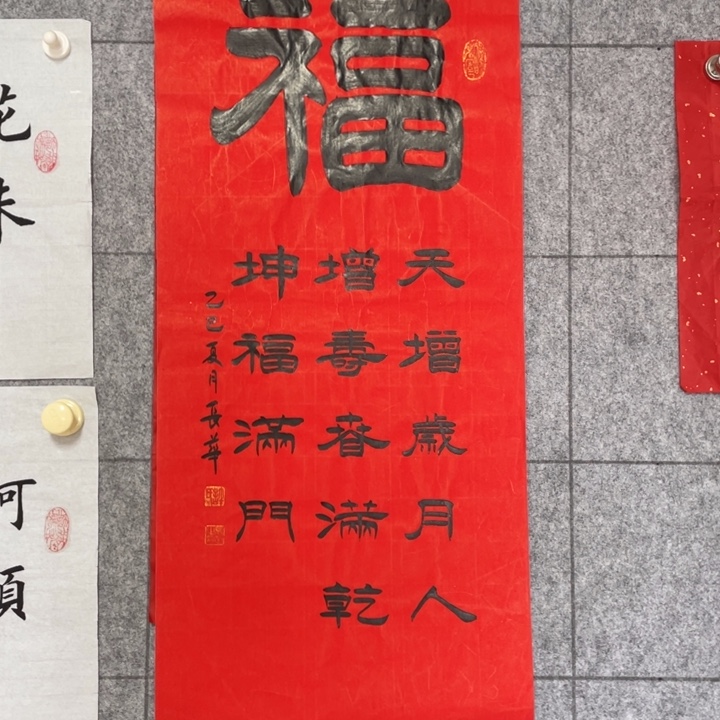 福
天增歲月人
增壽春滿乾
坤福滿門
乙巳夏月長華
花
珠
河
頭